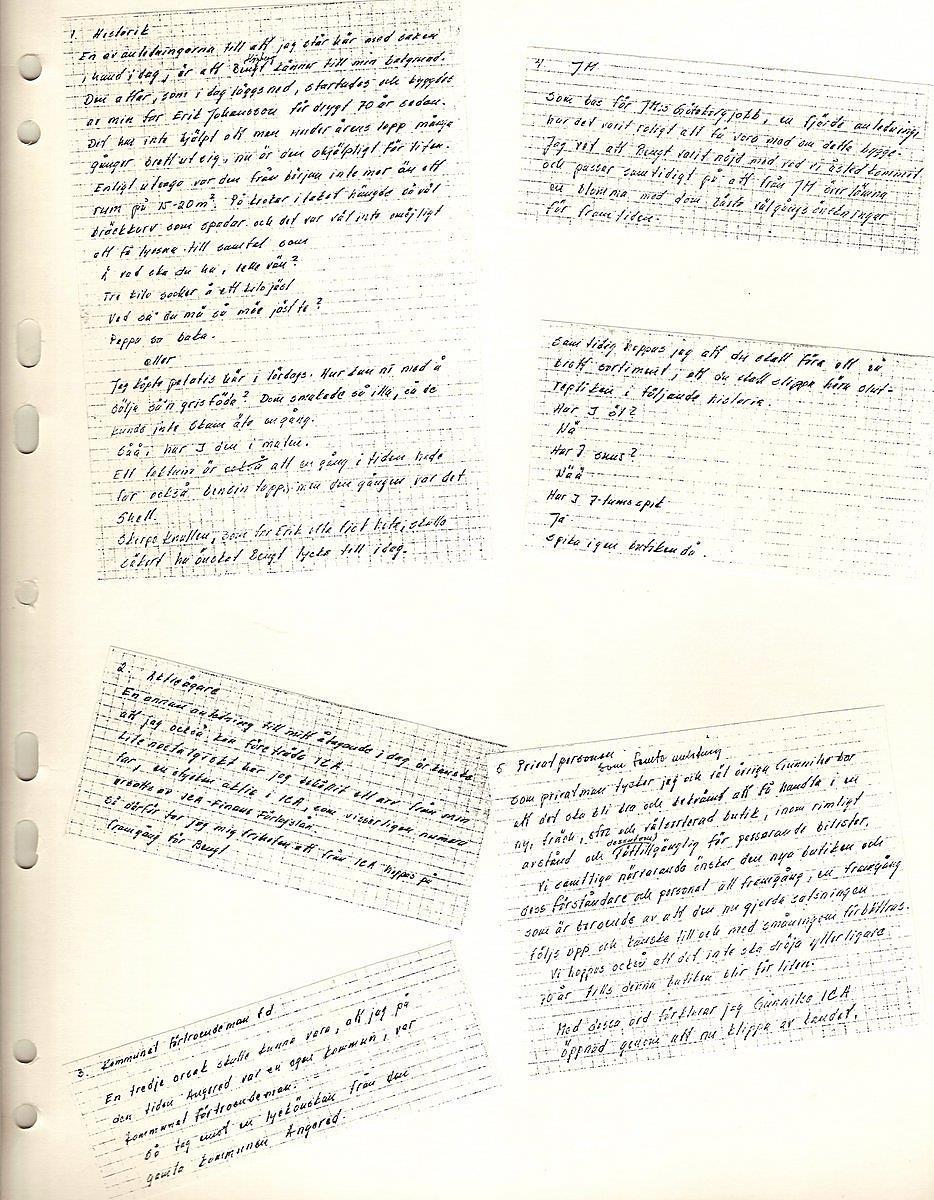 1. Historik
En av anledningarna till att jag står här med saxen
i hand i dag, är att Bengt känner till min bakgrund.
Den affär, som i dag läggs ned, startades och byggdes
av min far Erik Johansson för drygt 70 år sedan.
Det har inte hjälpt att man under årens lopp många
gånger brett ut sig, nu är den ohjälpligt för liten.
Enligt utsago var den från början inte mer än ett
rum på 15-20 m². På krokar i taket hängde såväl
bräckkorv som spadar och det var väl inte omöjligt
att få lyssna till samtal som
Å vad ska du ha, lelle vän?
Tre kilo socker å ett kilo jäst
Vad sa du må så möe jäst te?
Pappa sa baka.
eller
Jag köpte potatis här i lördags. Hur kan ni med å
sälja sån grisföda? Dom smakade så illa, så de
kunde inte ätas en gång.
Såå, har I den i maten.
Ett faktum är också att en gång i tiden hade
far också bensin tapp, men den gången var det
Shell.
som far Erik ofta fick heta, skulle
säkert ha önskat Bengt lycka till i dag.
4 JM
Som bas för JM:s Göteborgjobb, en fjärde anledning,
har det varit roligt att få vara med om detta bygge.
Jag vet att Bengt varit nöjd med vad vi åstadkommit
och passar samtidigt på att från JM överlämna
en blomma med dom bästa välgångsönskningar
för framtiden.
Samtidig hoppas jag att du skall föra ett så
brett sortiment, att du skall slippa höra slut-
repliken i följande historia.
Har I öl?
Nä
Har I snus?
Nää
Har I 7-tums spik
Ja
Spika igen butiken då.
2. Aktieägare
En annan anledning till mitt åtagande i dag är kanske
att jag också kan företräda ICA
Lite nostalgiskt har jag behållit ett arv från min
far, en stycken aktie i ICA, som visserligen numera
av ICA Finans Förlagslån
Så därför tar jag mig friheten att från ICA hoppas på
framgång för Bengt
3. Kommunal förtroendeman fd
En tredje orsak skulle kunna vara, att jag på
den tiden Angered var en egen kommun, var
kommunal förtroendeman.
Så tag emot en lyckönskan från den
gamla kommunen Angered.
5 Privatpersonen
som femte anledning
Som privatman tycker jag och väl övriga Gunnilsebor
att det ska bli bra och bekvämt att få handla i en
ny, fräsch, stor och välsorterad butik, inom rimligt
avstånd och dessutom lättillgänglig för passerande bilister.
Vi samtliga närvarande önskar den nya butiken och
dess föreståndare och personal all framgång, en framgång
som är beroende av att den nu gjorda satsningen
följs upp och kanske till och med småningom förbättras.
Vi hoppas också att det inte ska dröja ytterligare
70 år tills denna butiken blir för liten.
Med dessa ord förklarar jag Gunnilse ICA
öppnad genom att nu klippa av bandet.